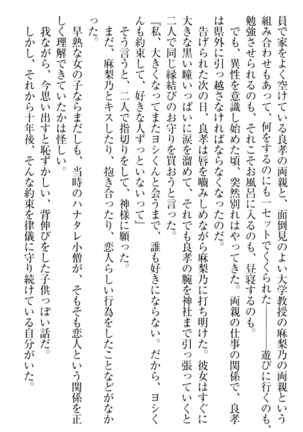 員で家をよく空けている良孝の両親と、面倒見のよい大学教授の麻梨乃の両親という
組み合わせもあって、何をするのにも二人セットでくくられた――遊びに行くのも、
勉強させられるのも、それこそお風呂に入るのも、昼寝するのも。
でも、異性を意識し始めた頃、突然別れはやってきた。両親の仕事の関係で、良孝
は県外に引っ越さなければならなくなったのだ。
告げられた次の日、良孝は唇を噛みしめながら麻梨乃に打ち明けた。彼女はすぐに
大きな黒い瞳いっぱいに涙を溜めて、それでも良孝の腕を神社まで引っ張っていくと
二人で同じ縁結びのお守りを買おうと言った。
『私、大きくなってまたヨシくんと会うまで、誰も好きにならない。だから、ヨシく
んも約束して、好きな人ずっといないって』
そう言うと、二人で指切りをして、神様に願った。
まだ、麻梨乃とキスしたり、抱き合ったり、恋人らしい行為をしたことなどがなか
った。
早熟な女の子ならまだしも、当時のハナタレ小僧が、そもそも恋人という関係を正
しく理解できていたかは怪しい。
我ながら、今思い出すと恥ずかしい、背伸びをした子供っぽい話だ。
しかし、それから十年後、そんな約束を律儀に守り続けている自分がいた。